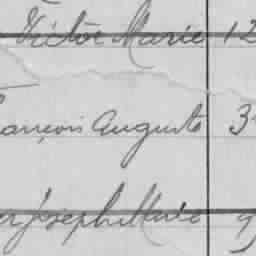 Victor Marie 12
François Auguste 3
Joseph Marie